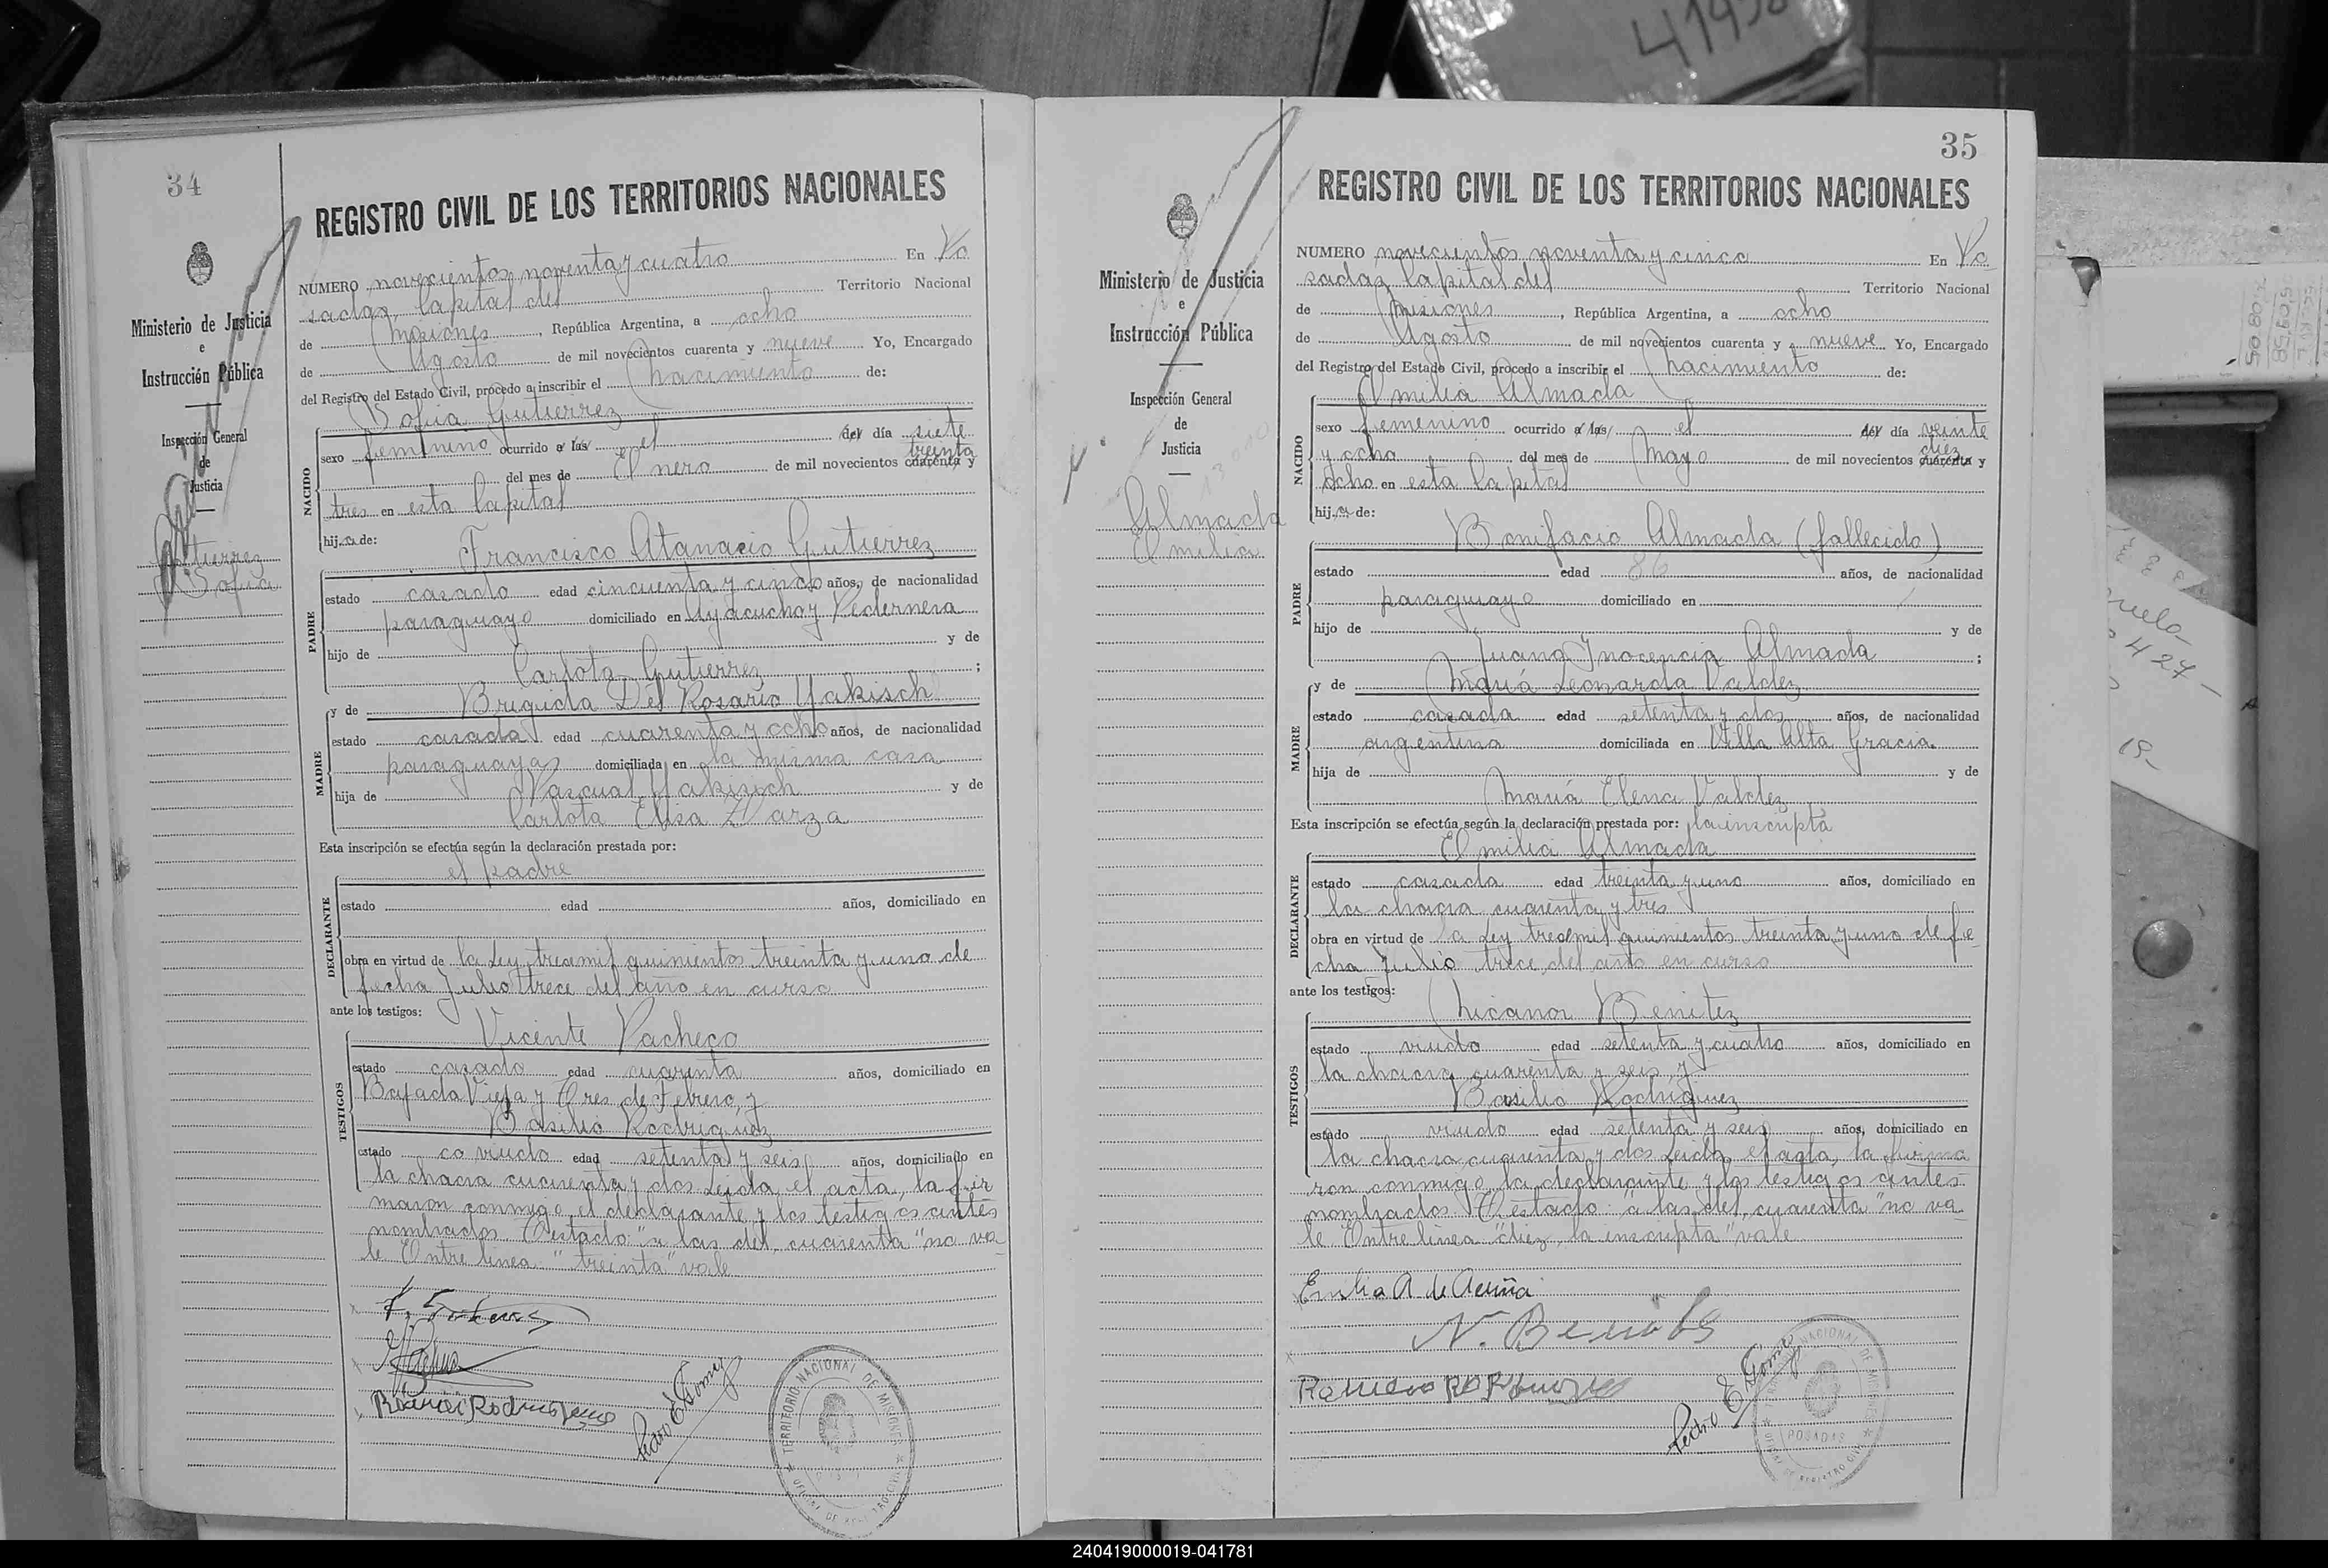 41950
34
Ministerio de Justicia
e
Instrucción Pública
Inspección General
de
Justicia
Gutierrez
Sofia
REGISTRO CIVIL DE LOS TERRITORIOS NACIONALES
NUMERO novecientos noventa y cuatro En Po
sadas, Capital del Territorio Nacional
de Misiones, República Argentina, a ocho
de Agosto de mil novecientos cuarenta y nueve Yo, Encargado
del Registro del Estado Civil, procedo a inscribir el nacimiento de:
Sofia Gutierrez
NACIDO
sexo femenino ocurrido a las el del día siete
treinta
del mes de Enero de mil novecientos cuarenta y
tres en esta Capital
hija de:
Francisco Atanacio Gutierrez
PADRE
estado casado edad cincuenta y cinco años, de nacionalidad
paraguayo domiciliado en Ayacucho y Pedernera
hijo de y de
Carlota Gutierrez ;
y de Brigida Del Rosario Yakisch
MADRE
estado casada edad cuarenta y ocho años, de nacionalidad
paraguaya domiciliada en la misma casa
hija de Pascual Yakisich y de
Carlota Elisa
Esta inscripción se efectúa según la declaración prestada por:
el padre
DECLARANTE
estado edad años, domiciliado en
obra en virtud de la Ley trecemil quinientos treinta y uno de
fecha Julio trece del año en curso
ante los testigos:
Vicente Pacheco
TESTIGOS
estado casado edad cuarenta años, domiciliado en
Bajada Vieja y Tres de Febrero, y
Basilio Rodriguez
estado ca viudo edad setenta y seis años, domiciliado en
la chacra cuarenta y dos Leida el acta, la fir
maron conmigo el declarante y los testigos antes
nombrados Testado: "a las del, cuarenta" no va
le Entre linea: "treinta" vale
Pedro E. Gomez
TERRITORIO NACIONAL DE MISIONES
35
Ministerio de Justicia
e
Instrucción Pública
Inspección General
de
Justicia
Almada
Emilia
REGISTRO CIVIL DE LOS TERRITORIOS NACIONALES
NUMERO novecientos noventa y cinco En Po
sadas Capital del Territorio Nacional
de Misiones, República Argentina, a ocho
de Agosto de mil novecientos cuarenta y nueve Yo, Encargado
del Registro del Estado Civil, procedo a inscribir el nacimiento de:
Emilia Almada
NACIDO
sexo femenino ocurrido a las el del día veinte
diez
y ocho del mes de Mayo de mil novecientos cuarenta y
ocho en esta Capital
hija de:
Bonifacio Almada (fallecido)
PADRE
estado edad 86 años, de nacionalidad
paraguayo domiciliado en
hijo de y de
Juana Inocencia Almada ;
y de Maria Leonarda Valdez
MADRE
estado casada edad setenta y dos años, de nacionalidad
argentina domiciliada en Villa Alta Gracia.
hija de y de
Maria Elena Valdez
Esta inscripción se efectúa según la declaración prestada por: la inscripta
Emilia Almada
DECLARANTE
estado casada edad treinta y uno años, domiciliado en
la chacra cuarenta y tres
obra en virtud de la Ley trecemil quinientos treinta y uno de fe
cha Julio trece del año en curso
ante los testigos:
Nicanor Benitez
TESTIGOS
estado viudo edad setenta y cuatro años, domiciliado en
la chacra cuarenta y seis, y
Basilio Rodriguez
estado viudo edad setenta y seis años, domiciliado en
la chacra cuarenta y dos Leida el acta, la firma
ron conmigo la declarante y los testigos antes
nombrados Testado: "a las del, cuarenta" no va
le Entre linea "diez, la inscripta" vale
Emilia A de Acuña
N. Benitez
Pedro E. Gomez
POSADAS
240419000019-041781